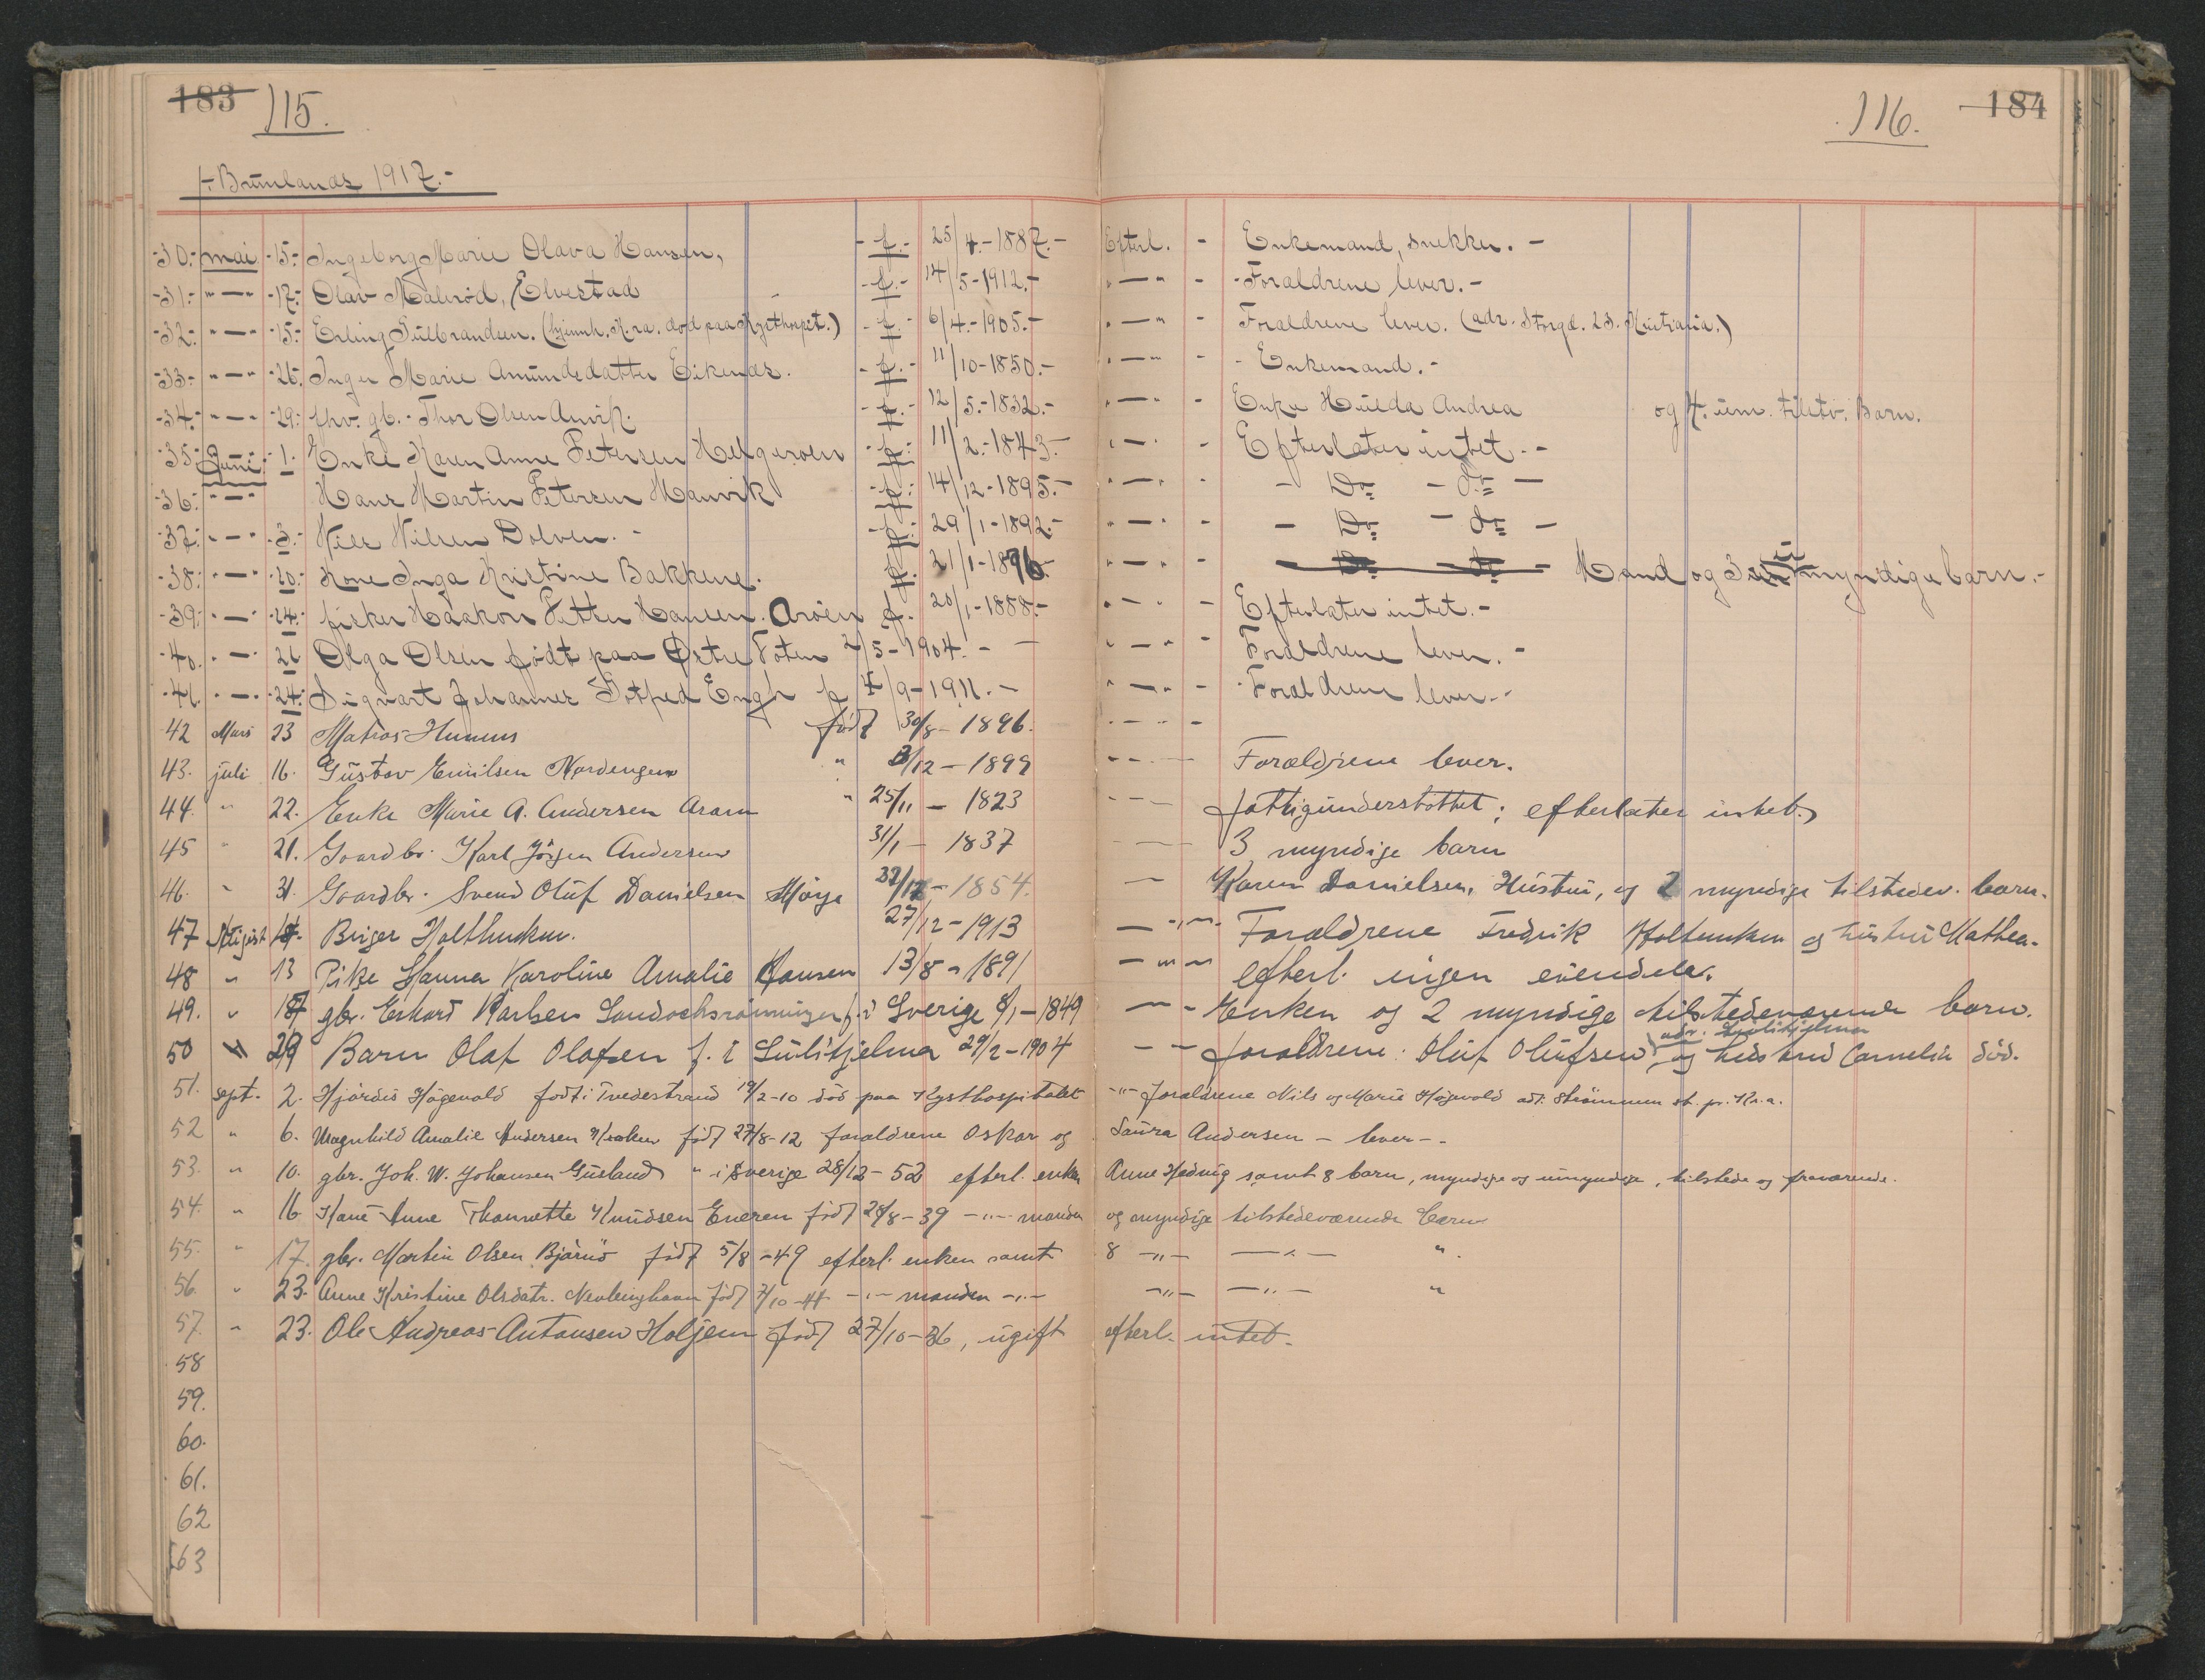 183 115. 116. 184
Brunlanæs 1917.-
-30.- mai -15.- Ingeborg Marie Olava Hansen, - f.- 25/4.-1887.- Efterl. - Enkemand, snekker. -
-31.- " — " -17.- Olav Malerød, Elvestad - f.- 14/5-1912.- " — " - - Foraldrene lever. -
-32.- " — " -15.- Erling Gulbrandsen. (hjemh. K.ra. død paa Kysthospit.) - f.- 6/4.-1905.- " — " - Foraldrene lever. (adr. Storgd. 23. Kristiania.)
-33.- " — " -26. Inger Marie Amundsdatter Eikenæs. - f.- 11/10-1850.- " — " - - Enkemand. -
-34.- " — " -29.- fhv. gb. - Thor Olsen Anvik. - f.- 12/5.-1832.- " — " - Enke Hulda Andrea og 4. um. tilstv. Barn.
-35.- Juni -1. Enke Karen Anne Petersen Helgeroen - f.- 11/2.-1843.- " — " - Efterlater intet. -
-36.- " — " Hans Martin Petersen Manvik - f.- 14/12-1895.- " — " - - Do - do -
-37.- " — " -3.- Niels Nilsen Dolven. - - f.- 29/1-1892.- " — " - - Do - do -
-38.- " — " -20.- Kone Inga Kristine Bakkene. f. 21/1-1896. " — " - Do do - Mand og 3 umyndige barn. -
-39.- " — " -24.- fisker Haakon Petter Hansen. Arøen f. 20/1-1888.- " — " - Efterlater intet. -
-40.- " — " 21 Olga Olsen født paa Østre Toten 2/5-1904. - - " — " - Foraldrene lever. -
-41.- " — " -24.- Sigvart Johannes Gotfred Engh f 4/9-1911. - " — " - - Foraldrene lever. -
42 Mars 23 Matros Hummus født 30/8-1896. - - " -
43. juli 16. Gustav Emilsen Nordengen " 3/12-1899 - - - Forældrene lever.
44. " 22. Enke Marie A. Andersen Aram " 25/11 - 1823 - - - fattigunderstøttet; efterlater intet.
45 " 21. Gaardbr. Karl Jörgen Andersen 31/1 - 1837 - - 3 myndige barn
46. " 31. Gaardbr. Svend Oluf Danielsen Mørje /12-1854. - Karen Danielsen, Hustru, og 2 myndige tilstedev. barn.
47 August Birger Holthusken. 27/12-1913 - " - Foraldrene Fredrik Holtusken og hustru Mathea.
48 " 13 Pike Hanna Karoline Amalie Hansen 13/8 - 1891 - " - efterl. ingen eiendeler.
49. " 18 gbr. Erhard Karlsen f. i Sverige 8/1-1849 - - Enken og 2 myndige tilstedeværende barn.
50 " 29 Barn Olaf Olafsen f. i Sulitjelma 29/2-1904 - - foraldrene: Oluf Olufsen og hustru Cornelia død.
adr. Sulitjelma
51. sept. 2. Hjördis Högevold född i Tvedestrand 19/2-10 död paa Kysthospitalet - " - foraldrene Nils og Marie Högevold adr. Strömmen st. pr. Kr.a.
52 " 6. Magnhild Amalie Andersen Kraken født 27/8-12 foraldrene Oskar og Laura Andersen - lever - -
53. " 10. gbr. Joh. W. Johansen Gusland " i Sverige 28/12-52 efterl. enken Anne Hedvig samt 8 barn, myndige og umyndige, tilstede og fraværende.
54. " 16 Kone Anne Thomette Knudsen Eneren född 28/8-39 - " - manden og myndige tilstedeværende barn
55. " 17. gbr. Martin Olsen Bjärnö född 5/8-49 efterl. enken samt 8 - " - - " - "
56. " 23. Anne Kristine Olsdatr. Nevlunghavn född 7/10-44 - " - manden - " - - " - - " - "
57. " 23. Ole Andreas Antonsen Holjem född 27/10-36, ugift efterl. intet.
58
59.
60.
61.
62
63